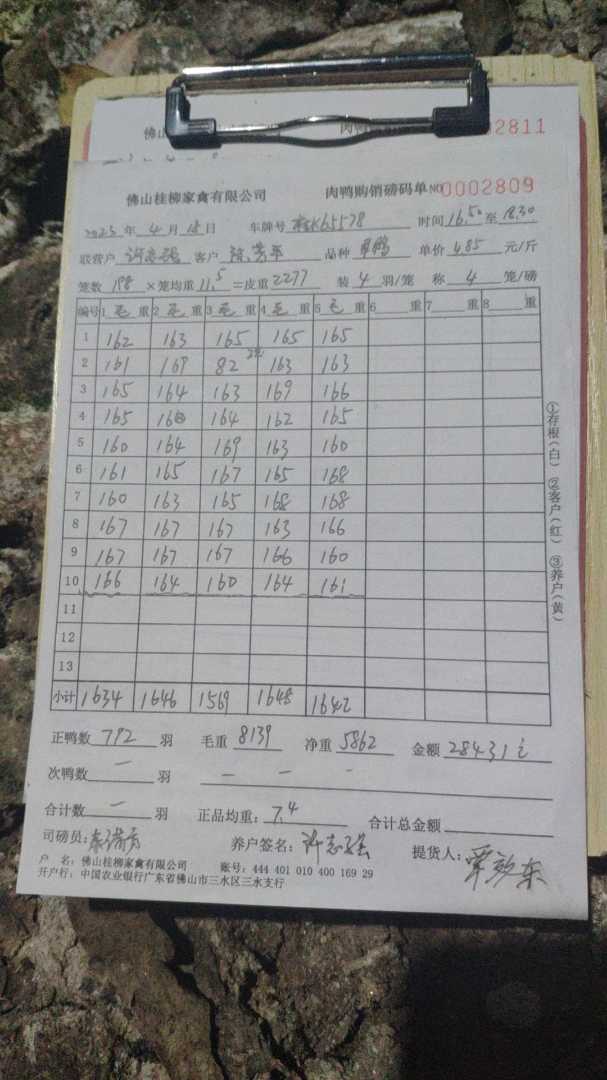 佛山 肉鸭 02811
佛山桂柳家禽有限公司 肉鸭购销磅码单 NO 0002809
2023 年 4 月 18 日 车牌号 桂K65578 时间 16.50 至 18.30
联营户 许志强 客户 品种 单价 4.85 元/斤
笼数 198 ×笼均重 11.5 =皮重 2277 装 4 羽/笼 称 4 笼/磅
编号 1 毛 重 2 毛 重 3 毛 重 4 毛 重 5 毛 重 6 重 7 重 8 重
1 162 163 165 165 165
2 161 169 82 163 163
3 165 164 163 169 166
4 165 164 162 165
5 160 164 169 163 160
6 161 165 167 165 168
7 160 163 165 168 168
8 167 167 167 163 166
9 167 167 167 166 160
10 166 164 160 164 161
11
12
13
小计 1634 1646 1569 1648 1642
正鸭数 792 羽 毛重 8139 净重 5862 金额 28431
次鸭数 一 羽 — — -
合计数 一 羽 正品均重: 7.4 合计总金额
司磅员: 养户签名: 许志强 提货人:
户 名: 佛山桂柳家禽有限公司 账号: 444 401 010 400 169 29
开户行: 中国农业银行广东省佛山市三水区三水支行
①存根(白) ②客户(红) ③养户(黄)